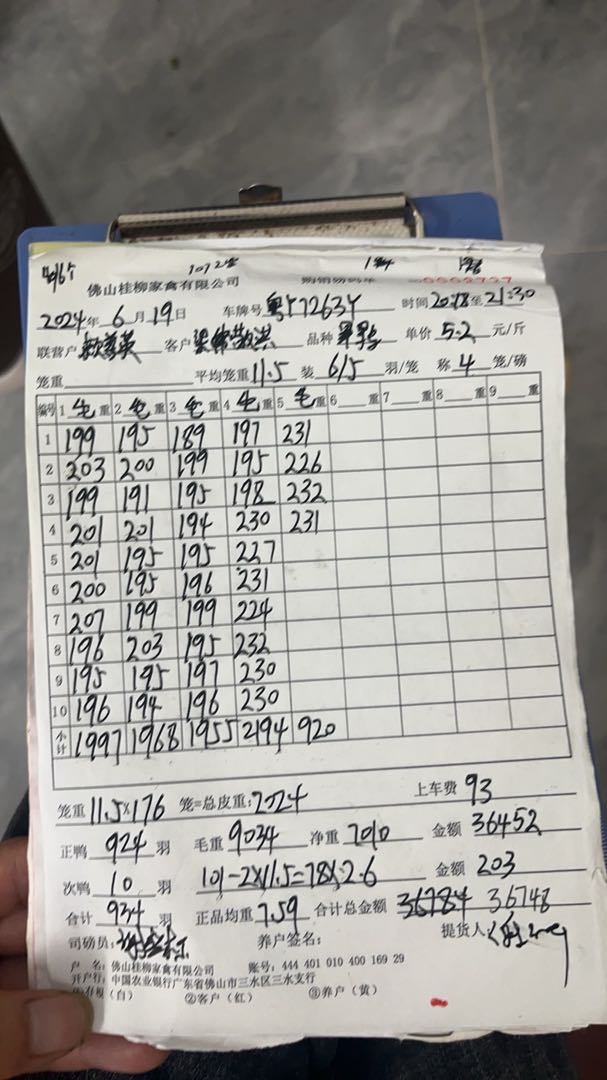 佛山桂柳家禽有限公司
2024年 6月19日 车牌号 粤Y7263Y 时间 20:18至21:30
联营户 客户 品种 单价 5.2 元/斤
笼重 平均笼重 11.5 装 6/5 羽/笼 称 4 笼/磅
编号 1 毛重 2 毛重 3 毛重 4 毛重 5 毛重 6 重 7 重 8 重 9 重
1 199 195 189 197 231
2 203 200 199 195 226
3 199 191 195 198 232
4 201 201 194 230 231
5 201 195 195 227
6 200 195 196 231
7 207 199 199 224
8 196 203 195 232
9 195 195 197 230
10 196 194 196 230
小计 1997 1968 1955 2194 920
笼重 11.5×176 笼=总皮重:2024 上车费 93
正鸭 924 羽 毛重 9034 净重 7010 金额 36452
次鸭 10 羽 101-2×11.5=78×2.6 金额 203
合计 934 羽 正品均重 7.59 合计总金额 36784 36748
司磅员: 养户签名: 提货人:
户 名: 佛山桂柳家禽有限公司 账号: 444 401 010 400 169 29
开户行: 中国农业银行广东省佛山市三水区三水支行
①存根(白) ②客户(红) ③养户(黄)